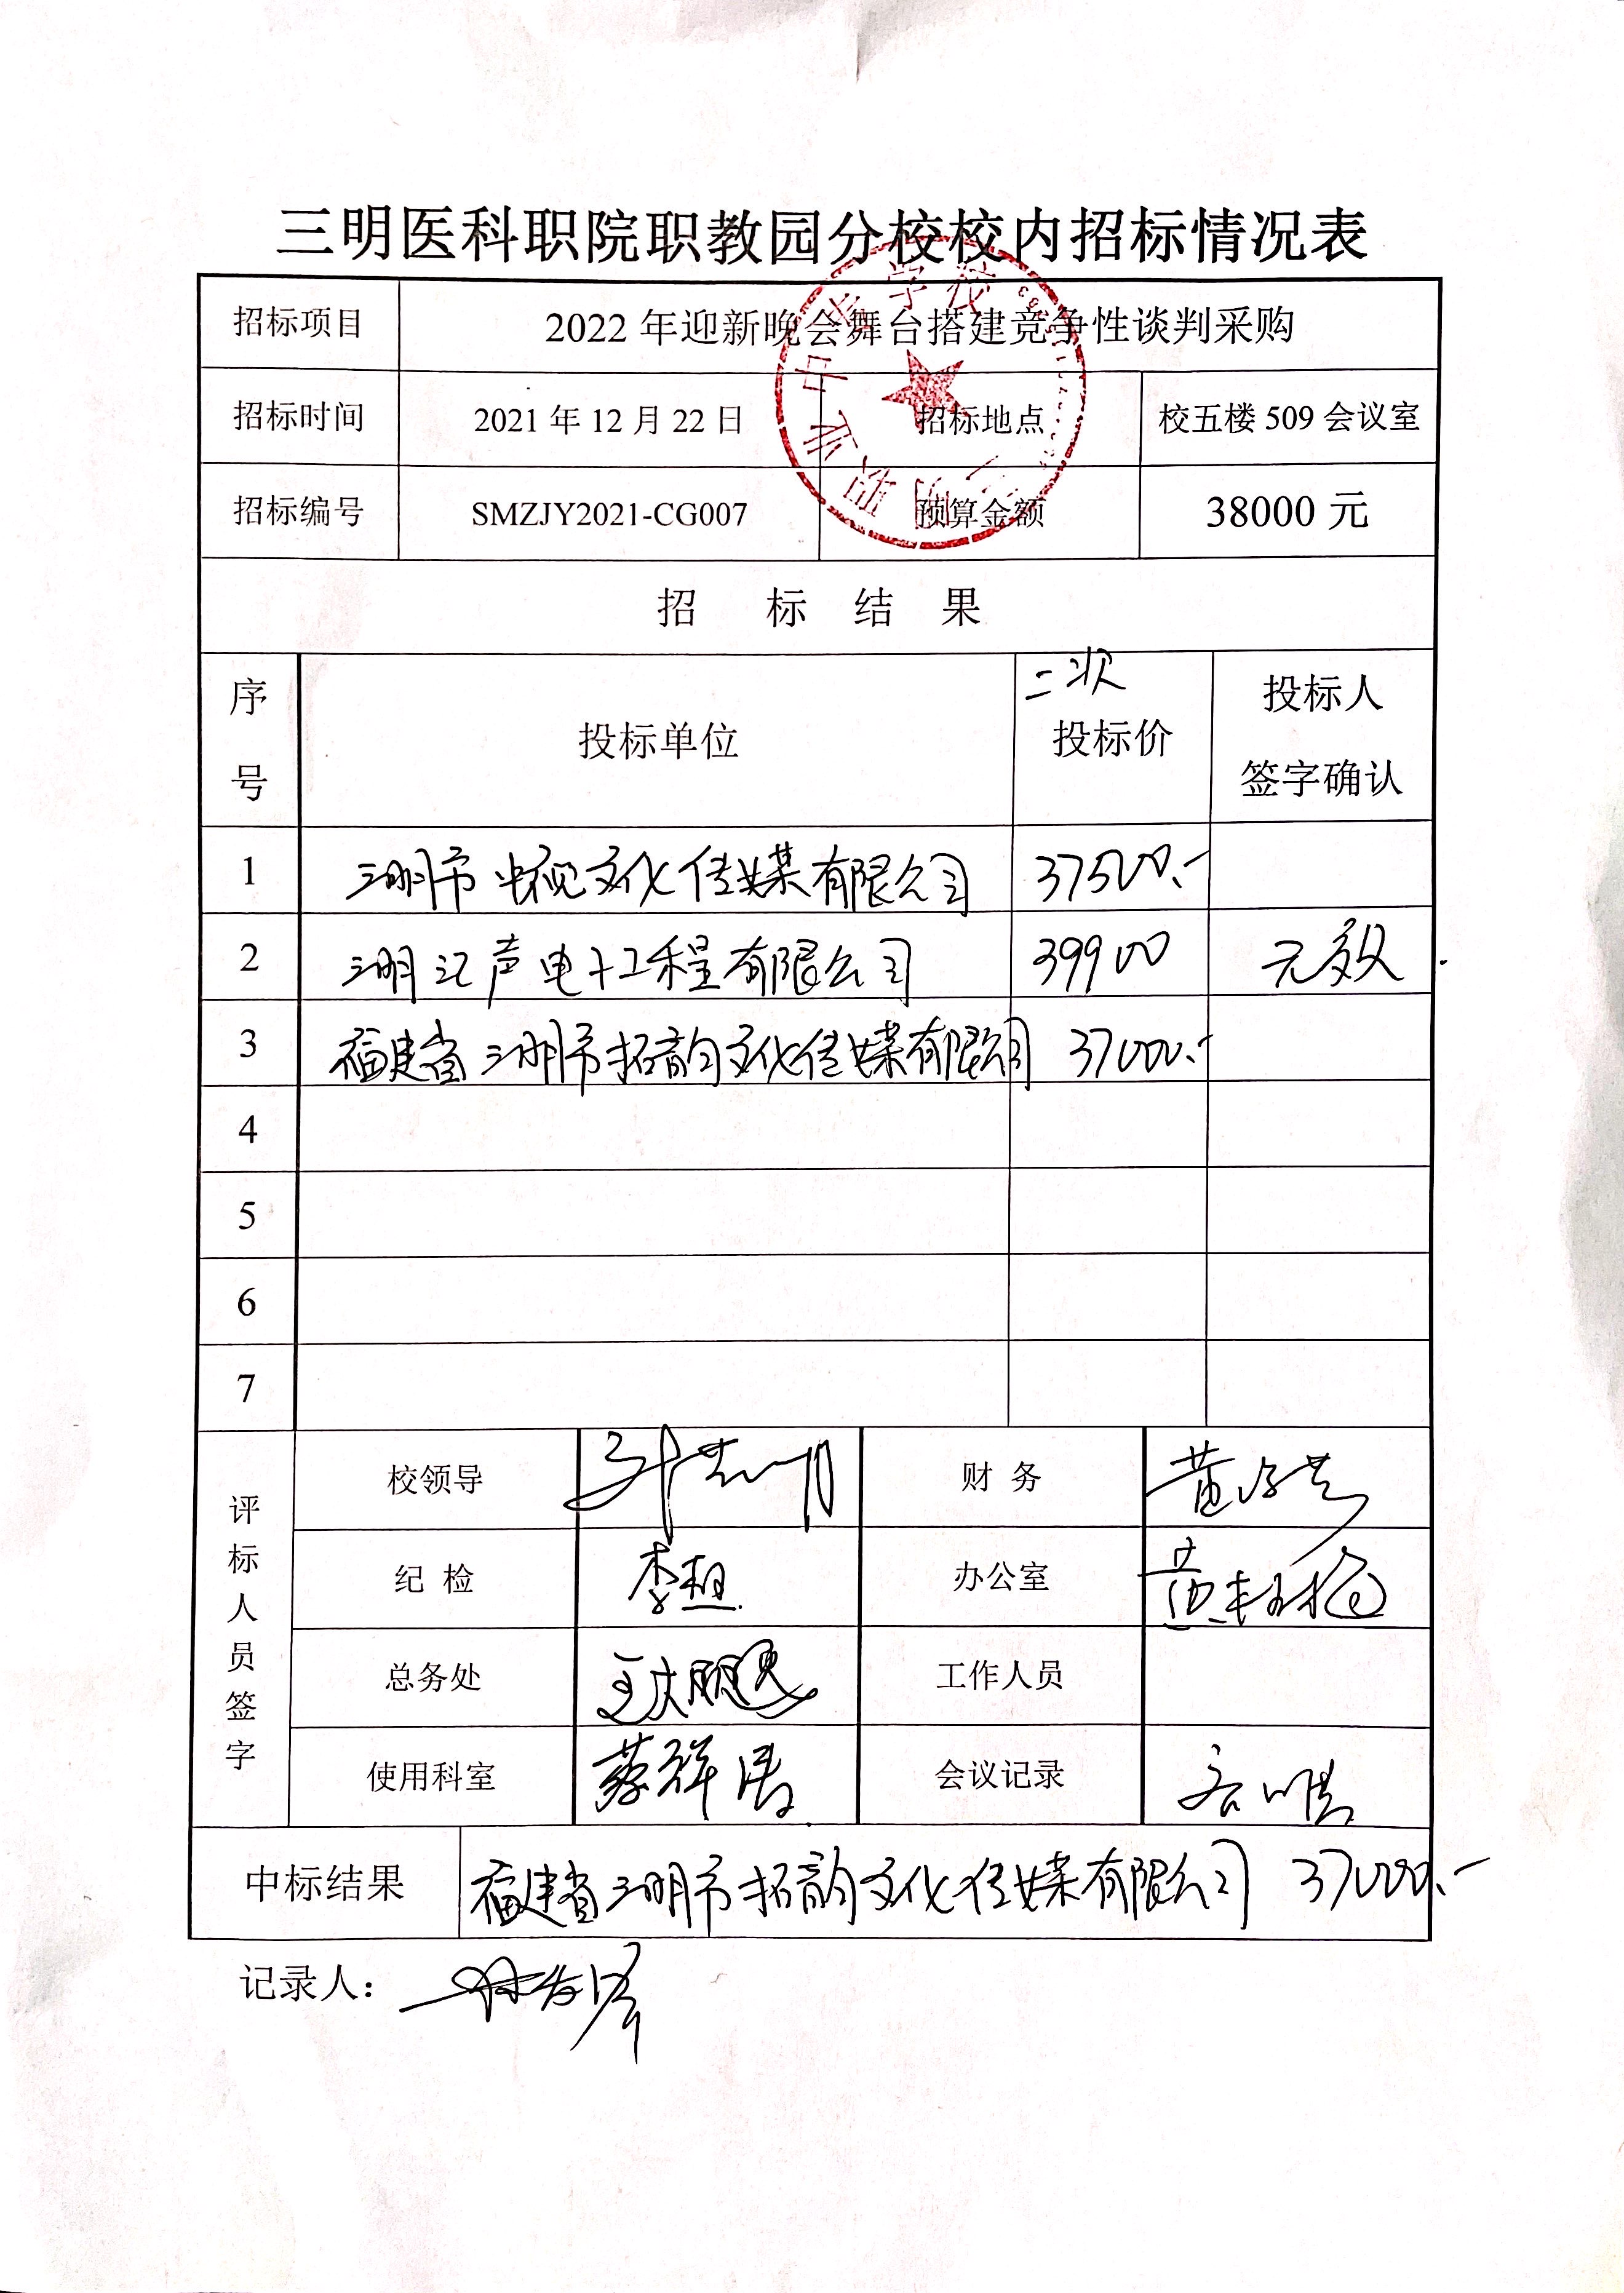 三明医科职院职教园分校校内招标情况表
招标项目 2022年迎新晚会舞台搭建竞争性谈判采购
招标时间 2021年12月22日 招标地点 校五楼509会议室
招标编号 SMZJY2021-CG007 预算金额 38000元
招标结果
序号 投标单位 二次投标价 投标人签字确认
1 三明市中视文化传媒有限公司 37500.-
2 三明汇声电子工程有限公司 39900 无效
3 福建省三明市拓韵文化传媒有限公司 37000.-
4
5
6
7
评标人员签字
校领导 财务
纪检 办公室
总务处 工作人员
使用科室 蔡祥 会议记录
中标结果 福建省三明市拓韵文化传媒有限公司 37000.-
记录人：
学校